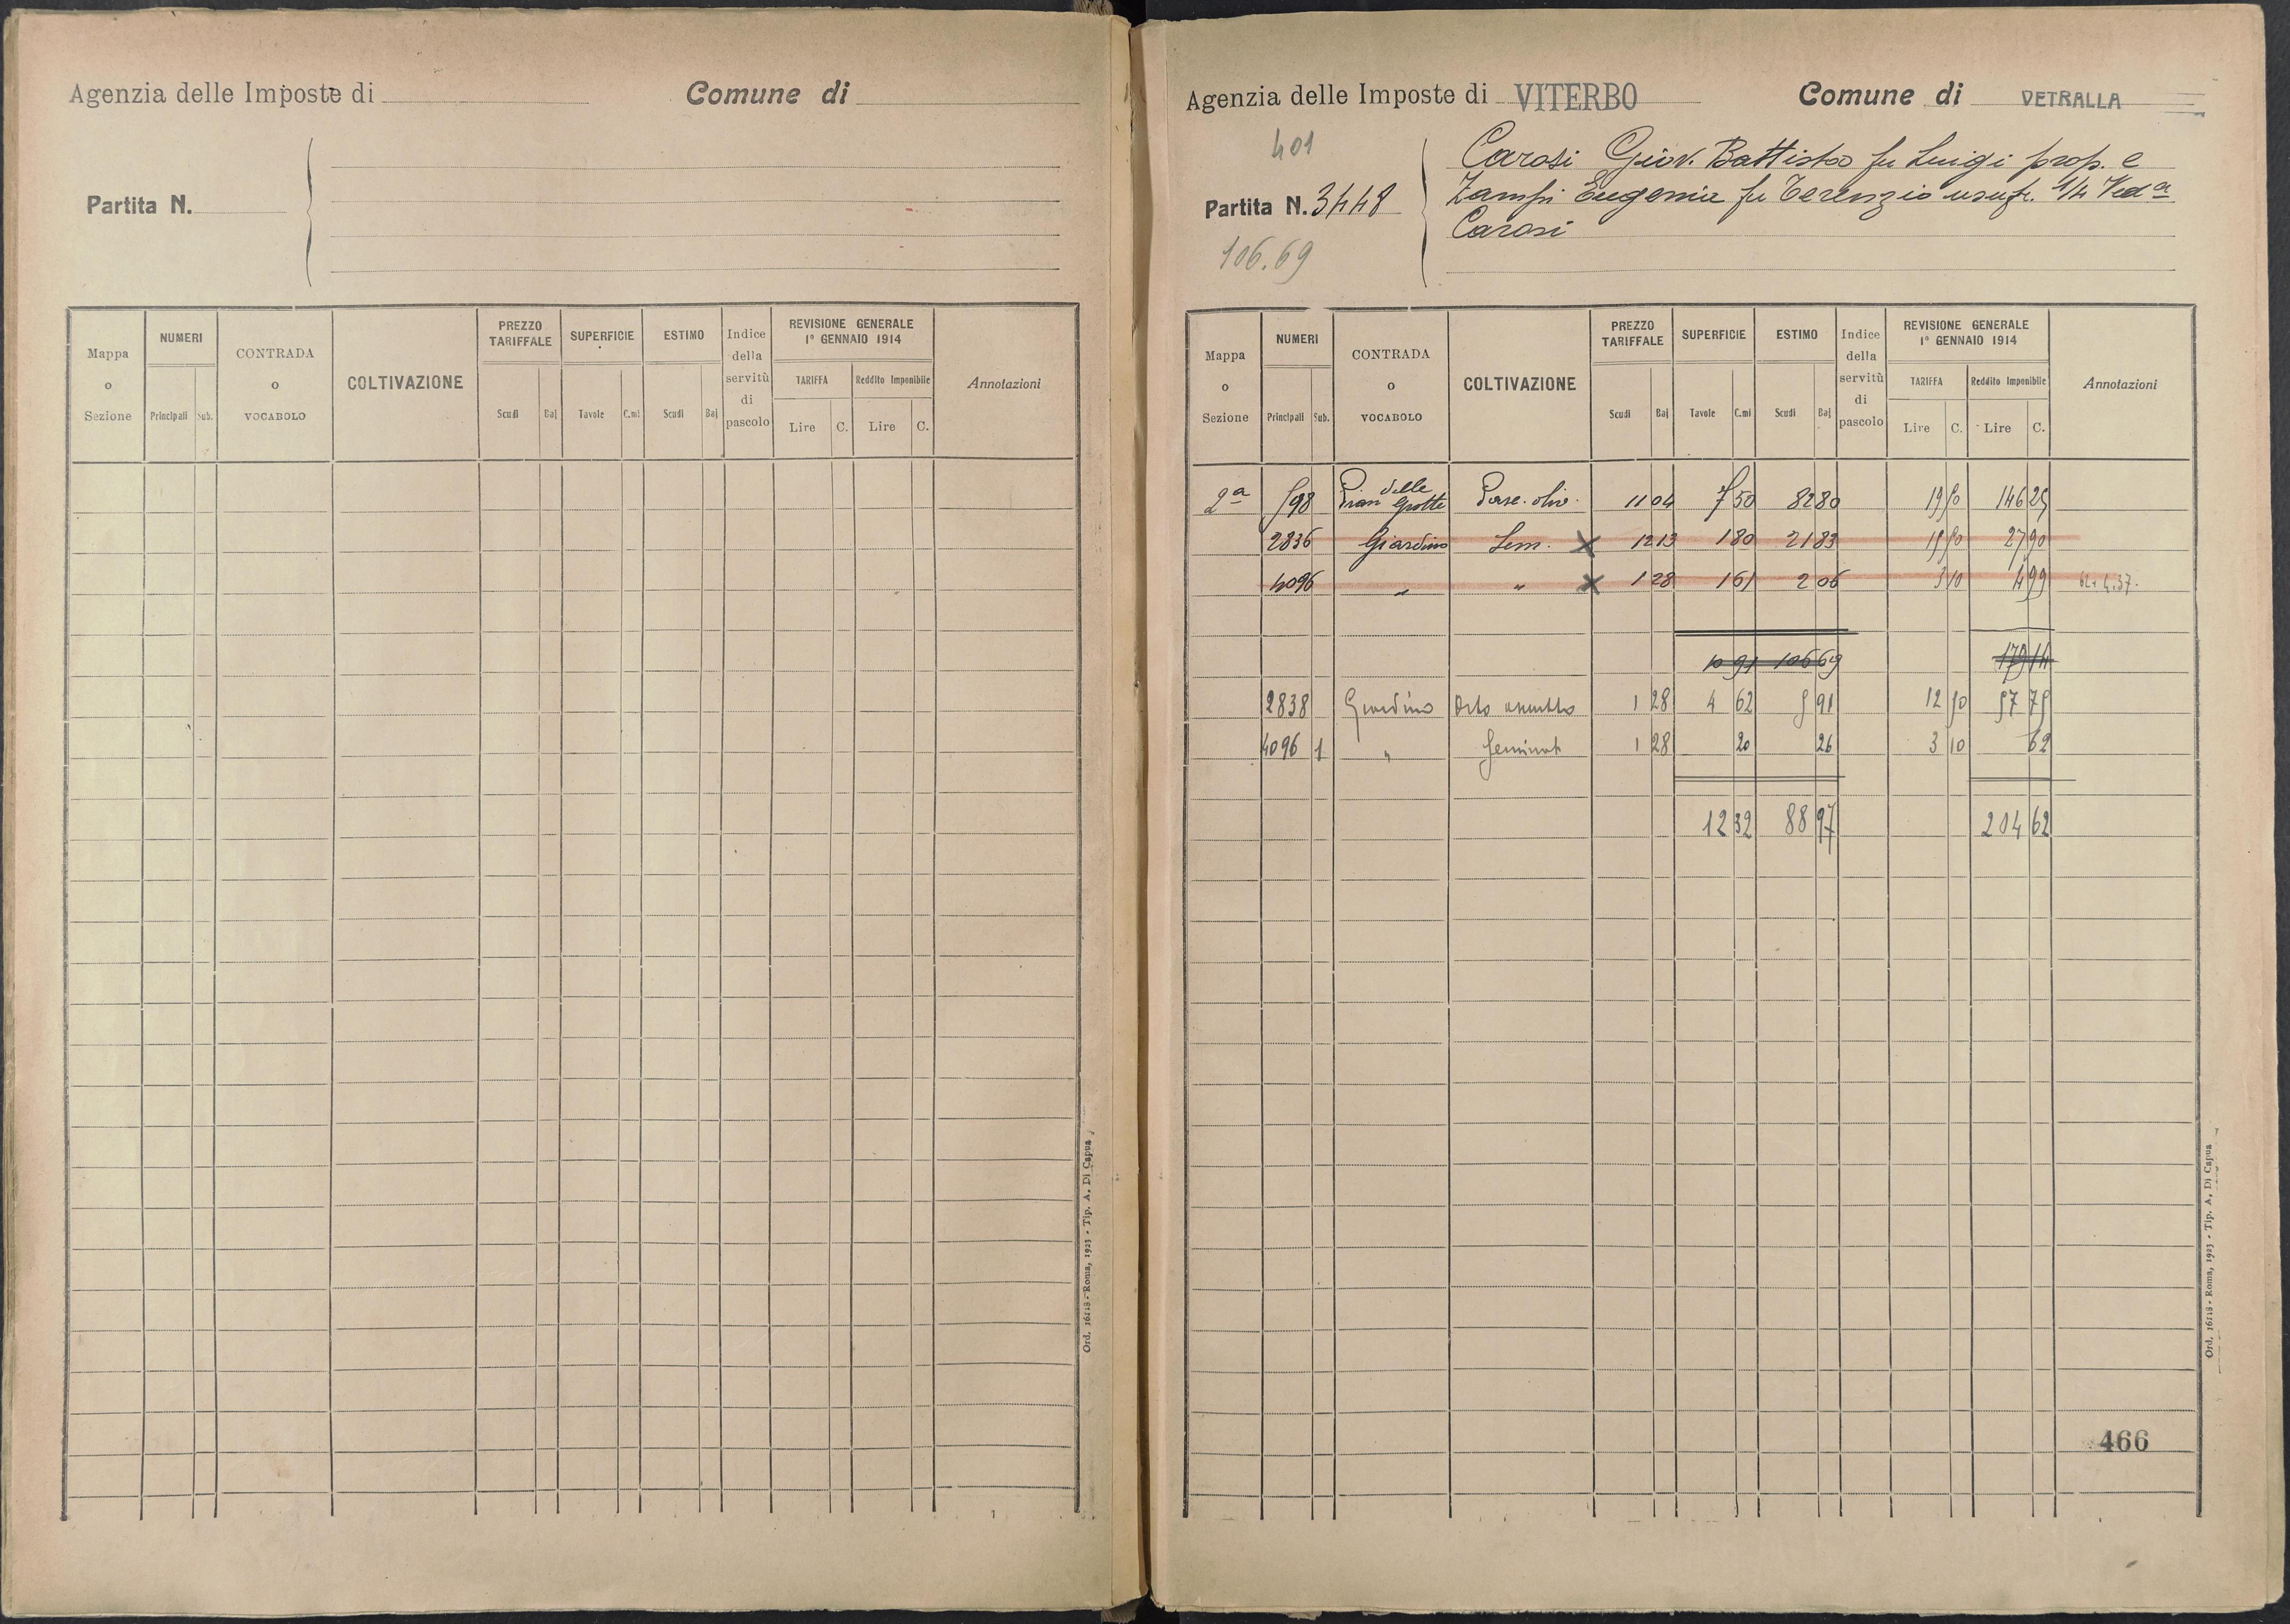 Agenzia delle Imposte di
Comune di
Partita N.
Mappa o Sezione
NUMERI
Principali Sub.
CONTRADA o VOCABOLO
COLTIVAZIONE
PREZZO TARIFFALE
Scudi Baj
SUPERFICIE
Tavole C.mi
ESTIMO
Scudi Baj
Indice della servitù di pascolo
REVISIONE GENERALE
1° GENNAIO 1914
TARIFFA Reddito Imponibile
Lire C. Lire C.
Annotazioni
Ord. 16218 - Roma, 1923 - Tip. A. Di Capua
Agenzia delle Imposte di VITERBO
Comune di VETRALLA
401
Partita N. 3448
106.69
Carosi Giov. Battista fu Luigi prop. e
Zampi Eugenia fu Terenzio usufr. 1/4 Ved a
Carosi
Mappa o Sezione
NUMERI
Principali Sub.
CONTRADA o VOCABOLO
COLTIVAZIONE
PREZZO TARIFFALE
Scudi Baj
SUPERFICIE
Tavole C.mi
ESTIMO
Scudi Baj
Indice della servitù di pascolo
REVISIONE GENERALE
1° GENNAIO 1914
TARIFFA Reddito Imponibile
Lire C. Lire C.
Annotazioni
2a 598 Pian delle Grotte oliv. 11 04 7 50 82 80 19 50 146 25
2836 Giardino Sem. X 12 13 1 80 21 83 15 50 27 90
4096 " " X 1 28 1 61 2 06 3 10 4 99
10 91 106 69 179 14
2838 Giardino Orto asciutto 1 28 4 62 5 91 12 50 57 75
4096 1 " Seminat 1 28 20 26 3 10 62
12 32 88 97 204 62
466
Ord. 16218 - Roma, 1923 - Tip. A. Di Capua